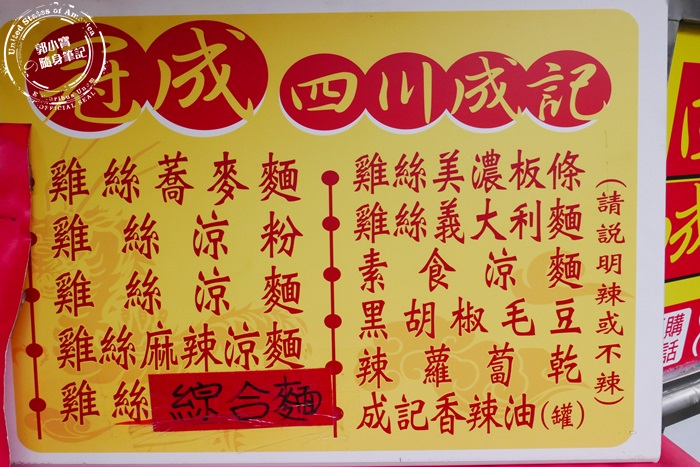 United States of America
郭小寶
隨身筆記
OFFICIAL SEAL
冠成 四川成記
雞絲蕎麥麵
雞絲涼粉
雞絲涼麵
雞絲麻辣涼麵
雞絲綜合麵
雞絲美濃板條
雞絲義大利麵
素食涼麵
黑胡椒毛豆
辣蘿蔔乾
成記香辣油(罐)
(請説明辣或不辣)
購
話